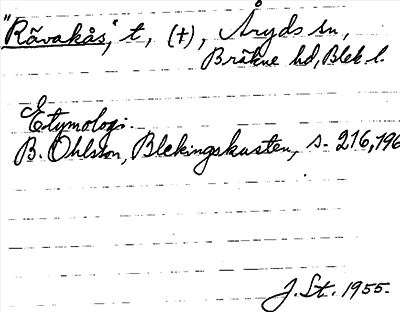 "Råvakås", t, (+), Åryds sn,
Bräkne hd, Blek l.
Etymologi.
B. Ohlsson, Blekingskusten, s. 216, 196
J. St. 1955.